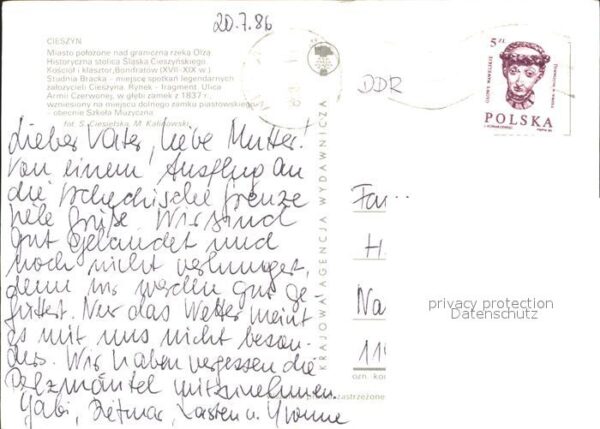 20.7.86
CIESZYN
Miasto położone nad graniczną rzeką Olzą
Historyczna stolica Śląska Cieszyńskiego
Kościół i klasztor Bonifratów (XVII-XIX w.)
Studnia Bracka - miejsce spotkań legendarnych
założycieli Cieszyna. Rynek - fragment. Ulica
Armii Czerwonej, w głębi zamek z 1837 r.
wzniesiony na miejscu dolnego zamku piastowskiego
- obecnie Szkoła Muzyczna
fot. S. Ciesielska, M. Kalinowski
DDR
5 zł
GŁOWY WAWELSKIE
POLSKA
Lieber Vater, liebe Mutter!
Von einem Ausflug an
die tschechische Grenze
viele Grüße. Wir sind
gut gelandet und
noch nicht verhungert,
denn wir werden gut ge
füttert. Nur das Wetter meint
es mit uns nicht beson-
ders. Wir haben vergessen die
Pelzmäntel mitzunehmen.
Gabi, Dietmar, Karsten u. Yvonne
KRAJOWA AGENCJA WYDAWNICZA
Fam
H
Na
11
privacy protection
Datenschutz
zastrzeżone